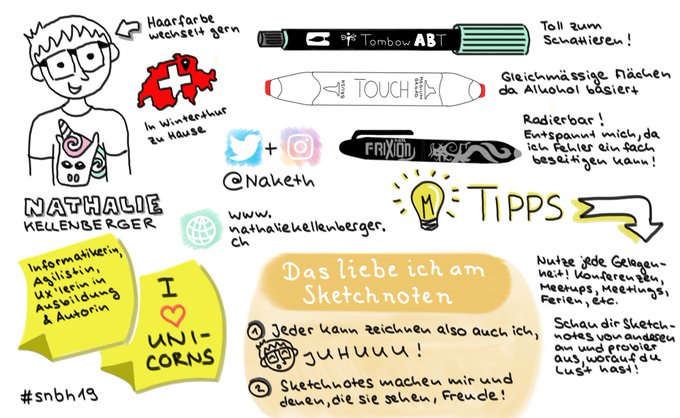 Haarfarbe
wechselt gern
In Winterthur
zu Hause
NATHALIE
KELLENBERGER
Informatikerin,
Agilistin,
Ux'lerin in
Ausbildung
& Autorin
I
UNI-
CORNS
#snbh19
Tombow ABT
Toll zum
Schattieren!
BRUSH
TOUCH
MEDIUM
BROAD
Gleichmässige Flächen
da Alkohol basiert
FRIXION
Radierbar!
Entspannt mich, da
ich Fehler einfach
beseitigen kann!
@Naketh
www.
nathaliekellenberger.
ch
TIPPS
Nutze jede Gelegen-
heit! Konferenzen,
Meetups, Meetings,
Ferien, etc.
Schau dir Sketch-
notes von anderen
an und probier
aus, worauf du
Lust hast!
Das liebe ich am
Sketchnoten
1 Jeder kann zeichnen also auch ich,
JUHUUU!
2 Sketchnotes machen mir und
denen, die sie sehen, Freude!